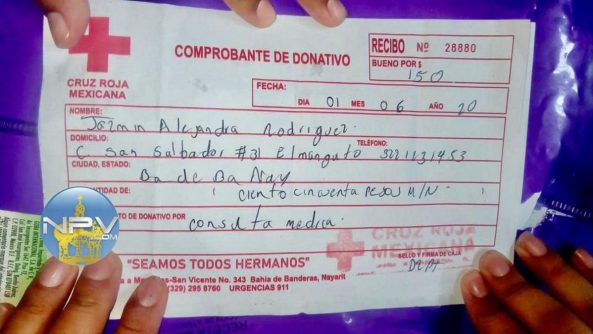 CRUZ ROJA
MEXICANA
COMPROBANTE DE DONATIVO
RECIBO Nº 28880
BUENO POR $
150
FECHA:
DIA 01 MES 06 AÑO 20
NOMBRE:
Jazmin Alejandra Rodriguez.
DOMICILIO:
TELÉFONO:
C. San Salbador #31 el manguito 3221131453
CIUDAD, ESTADO:
Ba de Ba Nay
CANTIDAD DE:
( ciento cincuenta pesos M/N
TO DE DONATIVO POR
consulta medica.
NPV
.COM
CRUZ ROJA
MEXICANA
SELLO Y FIRMA DE CAJA
"SEAMOS TODOS HERMANOS"
a Mezcales-San Vicente No. 343 Bahia de Banderas, Nayarit
(329) 295 8760 URGENCIAS 911